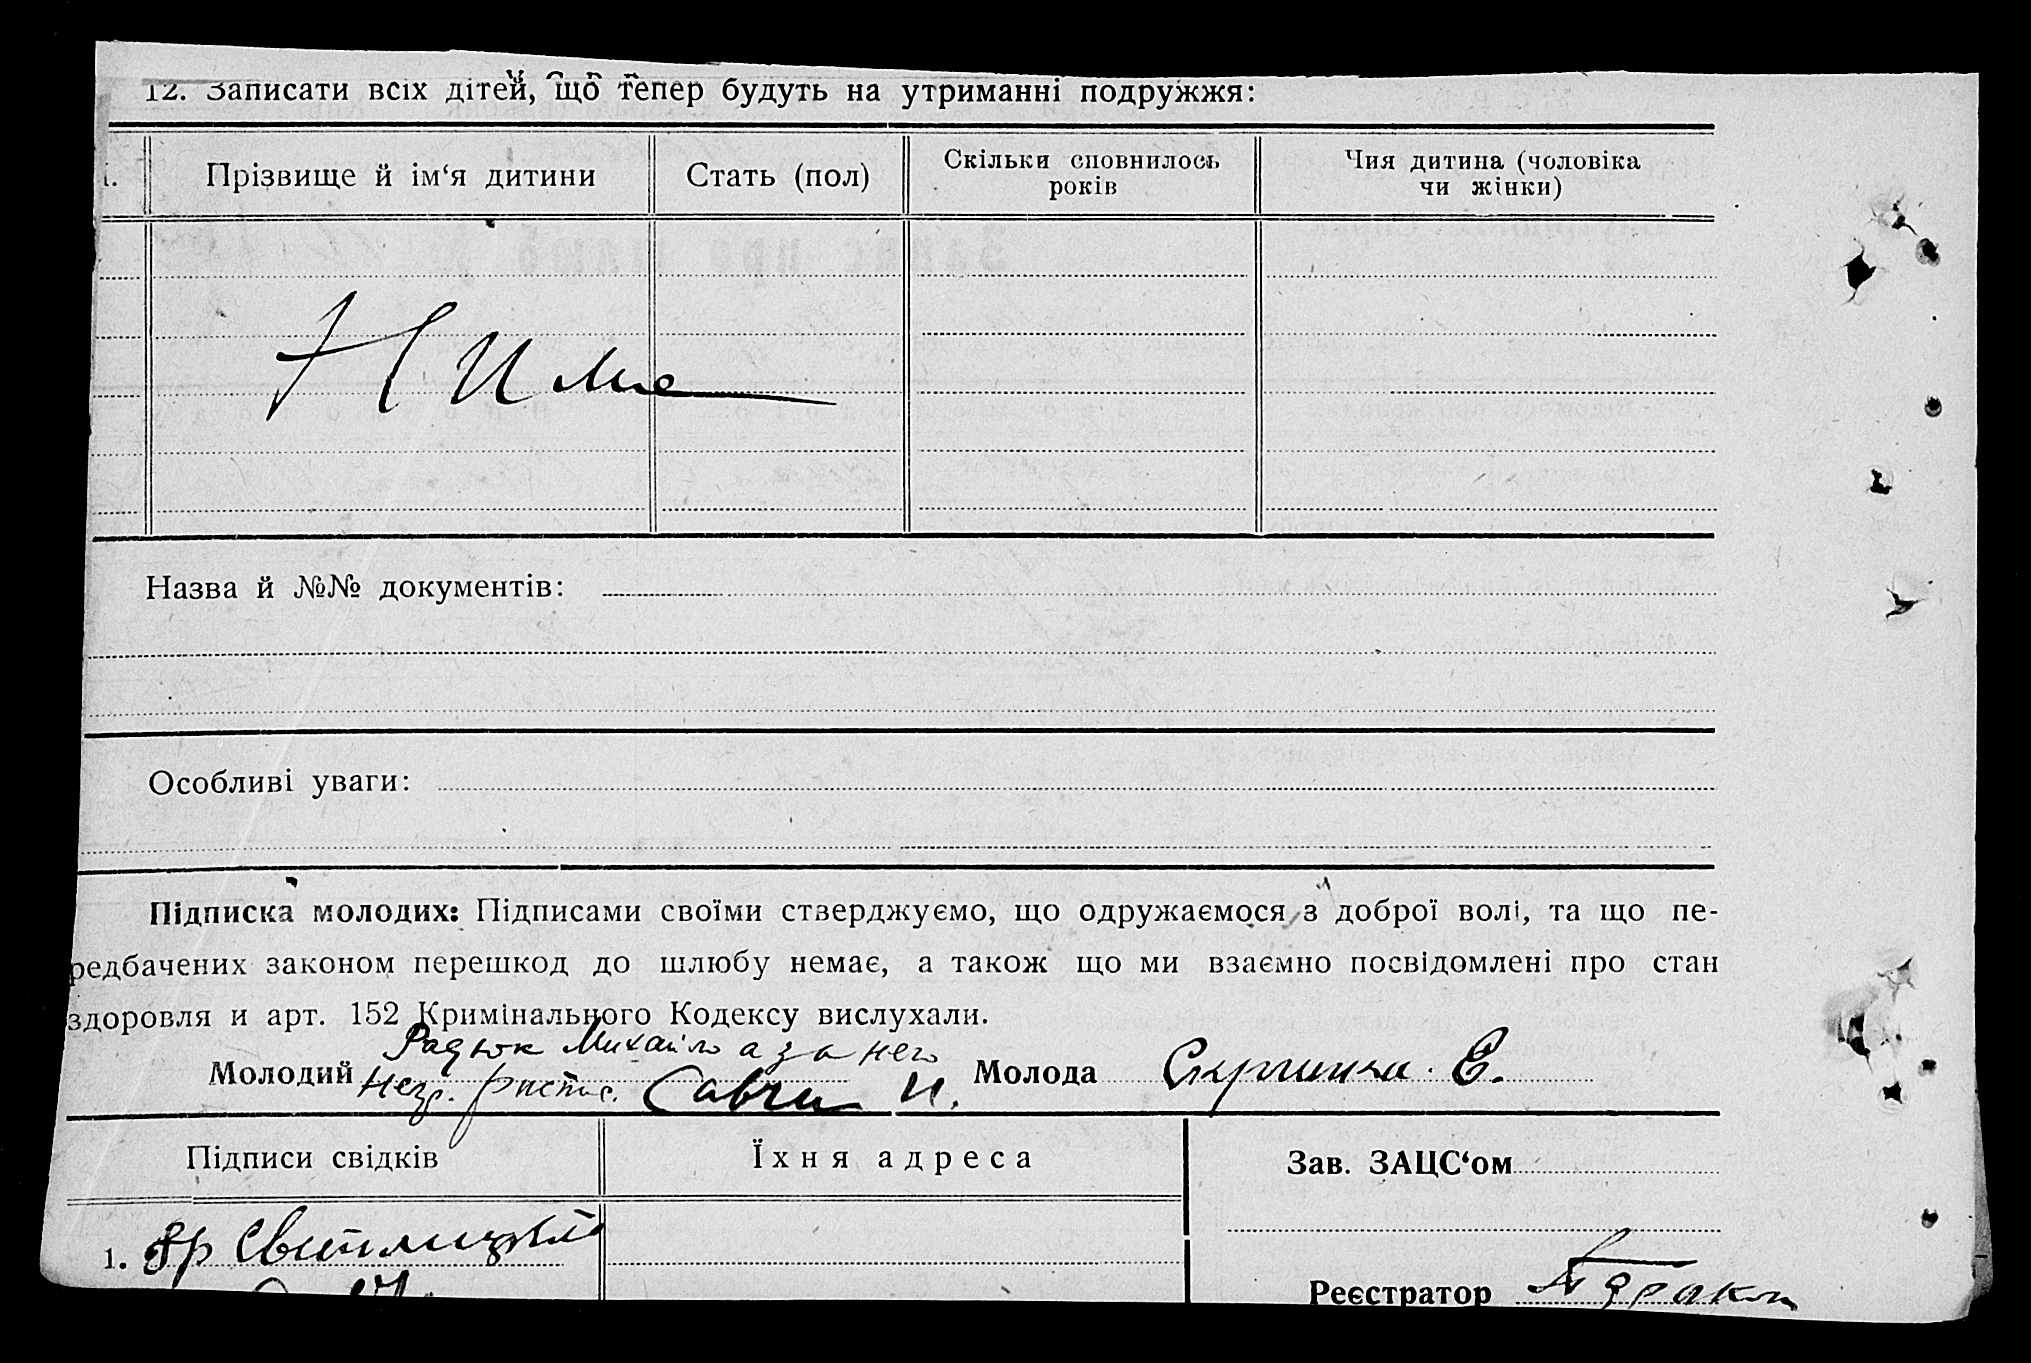 12. Записати всіх дітей, що тепер будуть на утриманні подружжя:
Прізвище й ім‘я дитини
Стать (пол)
Скільки сповнилось
років
Чия дитина (чоловіка
чи жінки)
Назва й №№ документів:
Особливі уваги:
Підписка молодих: Підписами своїми стверджуємо, що одружаємося з доброї волі, та що пе-
редбачених законом перешкод до шлюбу немає, а також що ми взаємно посвідомлені про стан
здоровля и арт. 152 Кримінального Кодексу вислухали.
Радюк Михайло а за него
Молодий И. Молода Е.
Підписи свідків
Їхня адреса
Зав. ЗАЦС‘ом
1.
Реєстратор